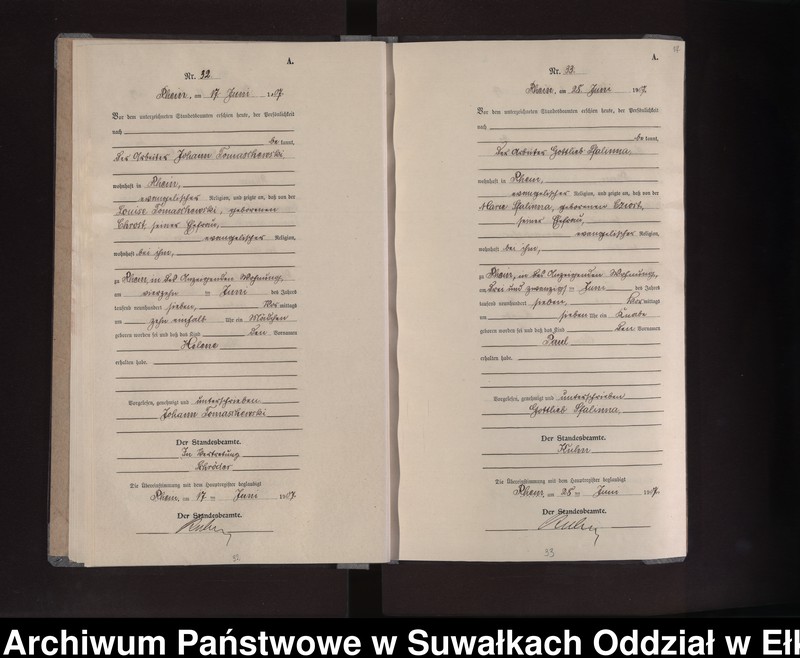 A.
Nr. 32.
Rhein, am 17 Juni 1907.
Vor dem unterzeichneten Standesbeamten erschien heute, der Persönlichkeit
nach
be kannt,
der Arbeiter Johann Tomaschewski
wohnhaft in Rhein,
evangelischer Religion, und zeigte an, daß von der
Louise Tomaschewski, geborenen
Chrost, seiner Ehefrau,
evangelischer Religion,
wohnhaft bei ihm,
zu Rhein in des Anzeigenden Wohnung,
am vierzehn ten Juni des Jahres
tausend neunhundert sieben, Vor mittags
um zehn einhalb Uhr ein Mädchen
geboren worden sei und daß das Kind den Vornamen
Helene
erhalten habe.
Vorgelesen, genehmigt und unterschrieben
Johann Tomaschewski
Der Standesbeamte.
In Vertretung
Schröder
Die Übereinstimmung mit dem Hauptregister beglaubigt
Rhein, am 17 ten Juni 1907.
Der Standesbeamte.
Kuhn
32
A.
Nr. 33.
Rhein, am 25 Juni 1907.
Vor dem unterzeichneten Standesbeamten erschien heute, der Persönlichkeit
nach
be kannt,
der Arbeiter Gottlieb Skalinna
wohnhaft in Rhein,
evangelischer Religion, und zeigte an, daß von der
Marie Skalinna, geborenen Cziost,
seiner Ehefrau,
evangelischer Religion,
wohnhaft bei ihm,
zu Rhein, in des Anzeigenden Wohnung,
am drei und zwanzig ten Juni des Jahres
tausend neunhundert sieben, Vor mittags
um sieben Uhr ein Knabe
geboren worden sei und daß das Kind den Vornamen
Paul
erhalten habe.
Vorgelesen, genehmigt und unterschrieben
Gottlieb Skalinna.
Der Standesbeamte.
Kuhn
Die Übereinstimmung mit dem Hauptregister beglaubigt
Rhein, am 25 ten Juni 1907.
Der Standesbeamte.
Kuhn
33
Archiwum Państwowe w Suwałkach Oddział w Ełk